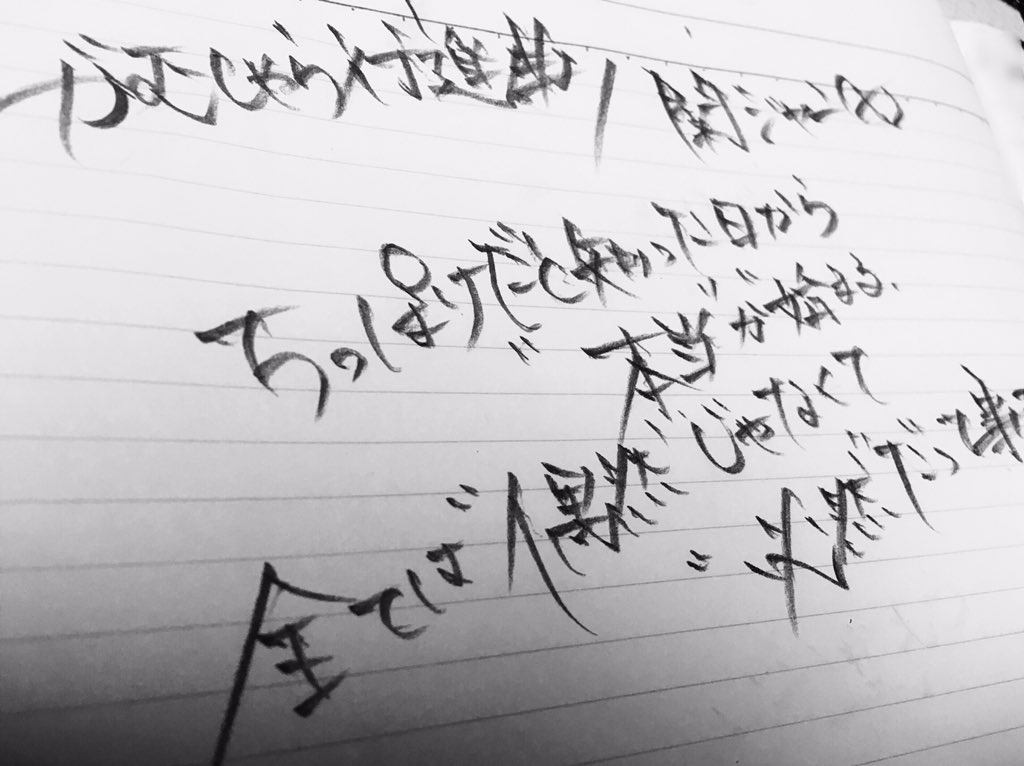 がむしゃら行進曲/関ジャニ∞
ちっぽけだと知った日から
"本当"が始まる.
全ては"偶然"じゃなくて
"必然"だって事